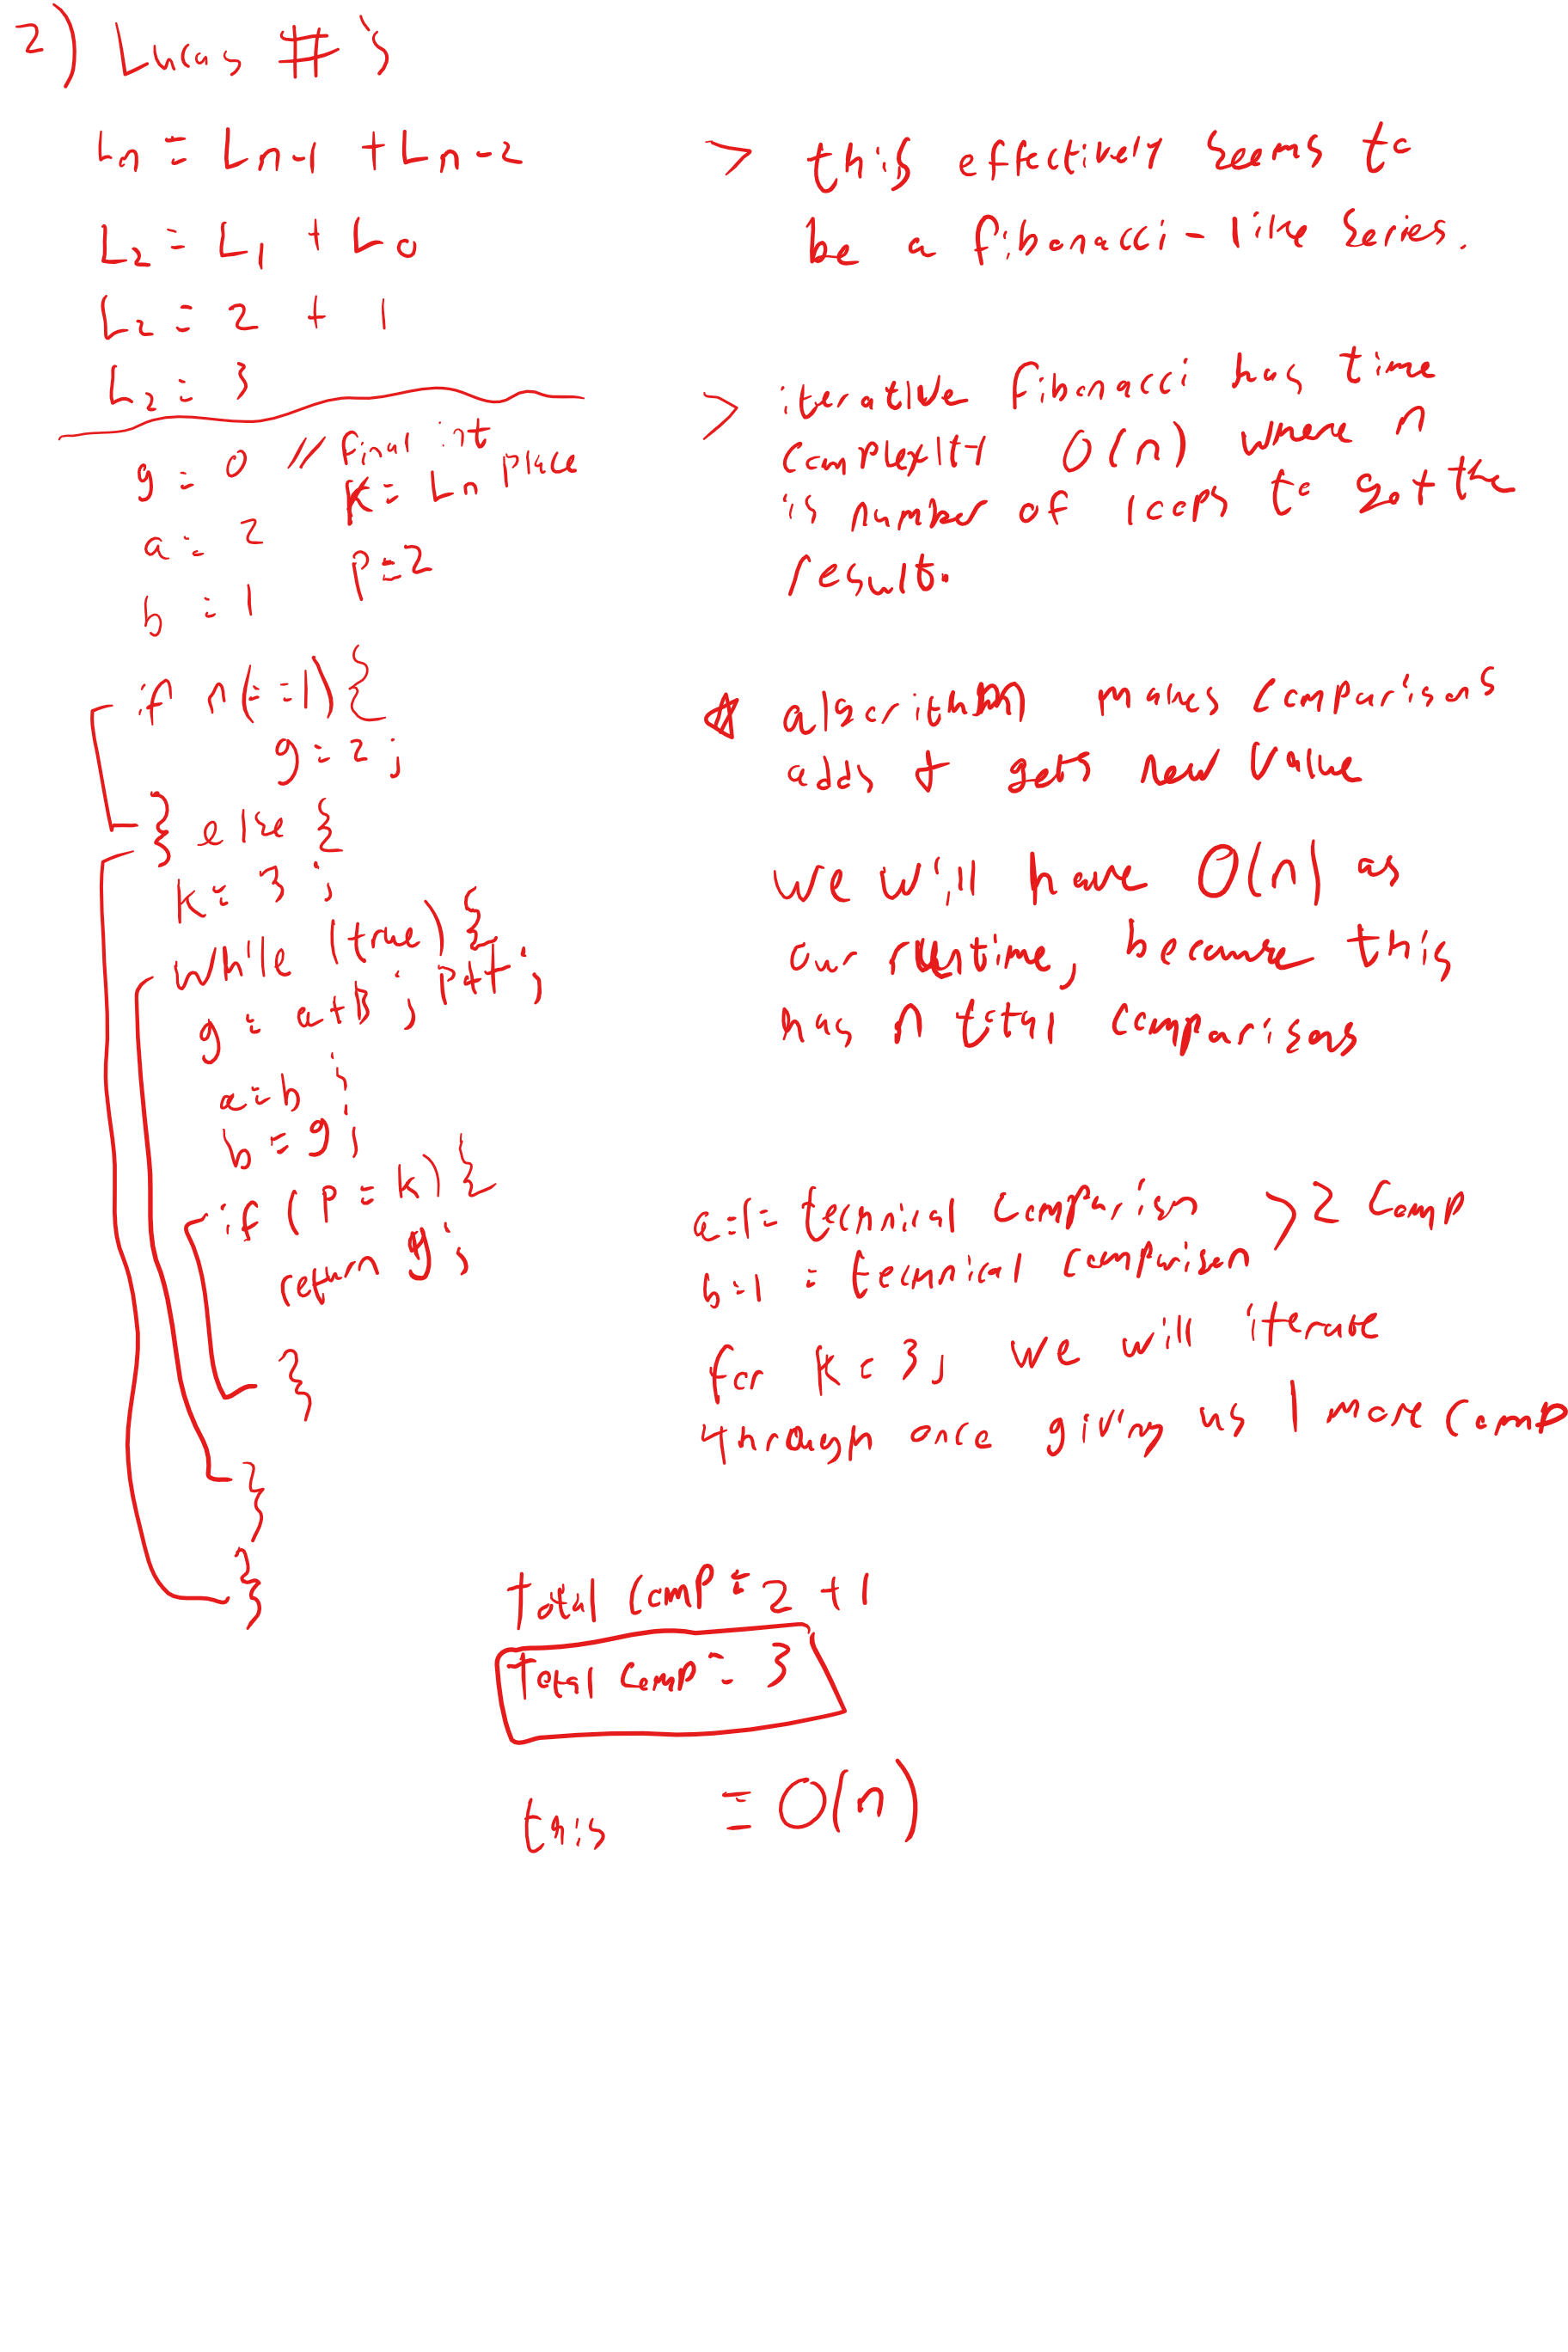 2) Lucas #'s
Ln = Ln-1 + Ln-2
L2 = L1 + L0
L2 = 2 + 1
L2 = 3
g = 0 // final int
k = Ln place
a = 2
p = 2
b = 1
if n(==1) {
g = 2;
} else {
k = 3;
while (true) {
g = a+b; p++;
a = b;
b = g;
if (p == k) {
return g;
}
}
}
> this effectively seems to
be a fibonacci-like series.
> iterative fibonacci has time
complexity O(n) where n
is number of loops to get the
result.
algorithm makes comparisons
adds + gets new value
we will have O(n) as
our runtime, because this
has n total comparisons
a=1= technical comparison > 2 comp
b=1 = technical comparison
for k = 3, we will iterate
through once giving us 1 more comp
total comp = 2 + 1
Total comp = 3
this = O(n)